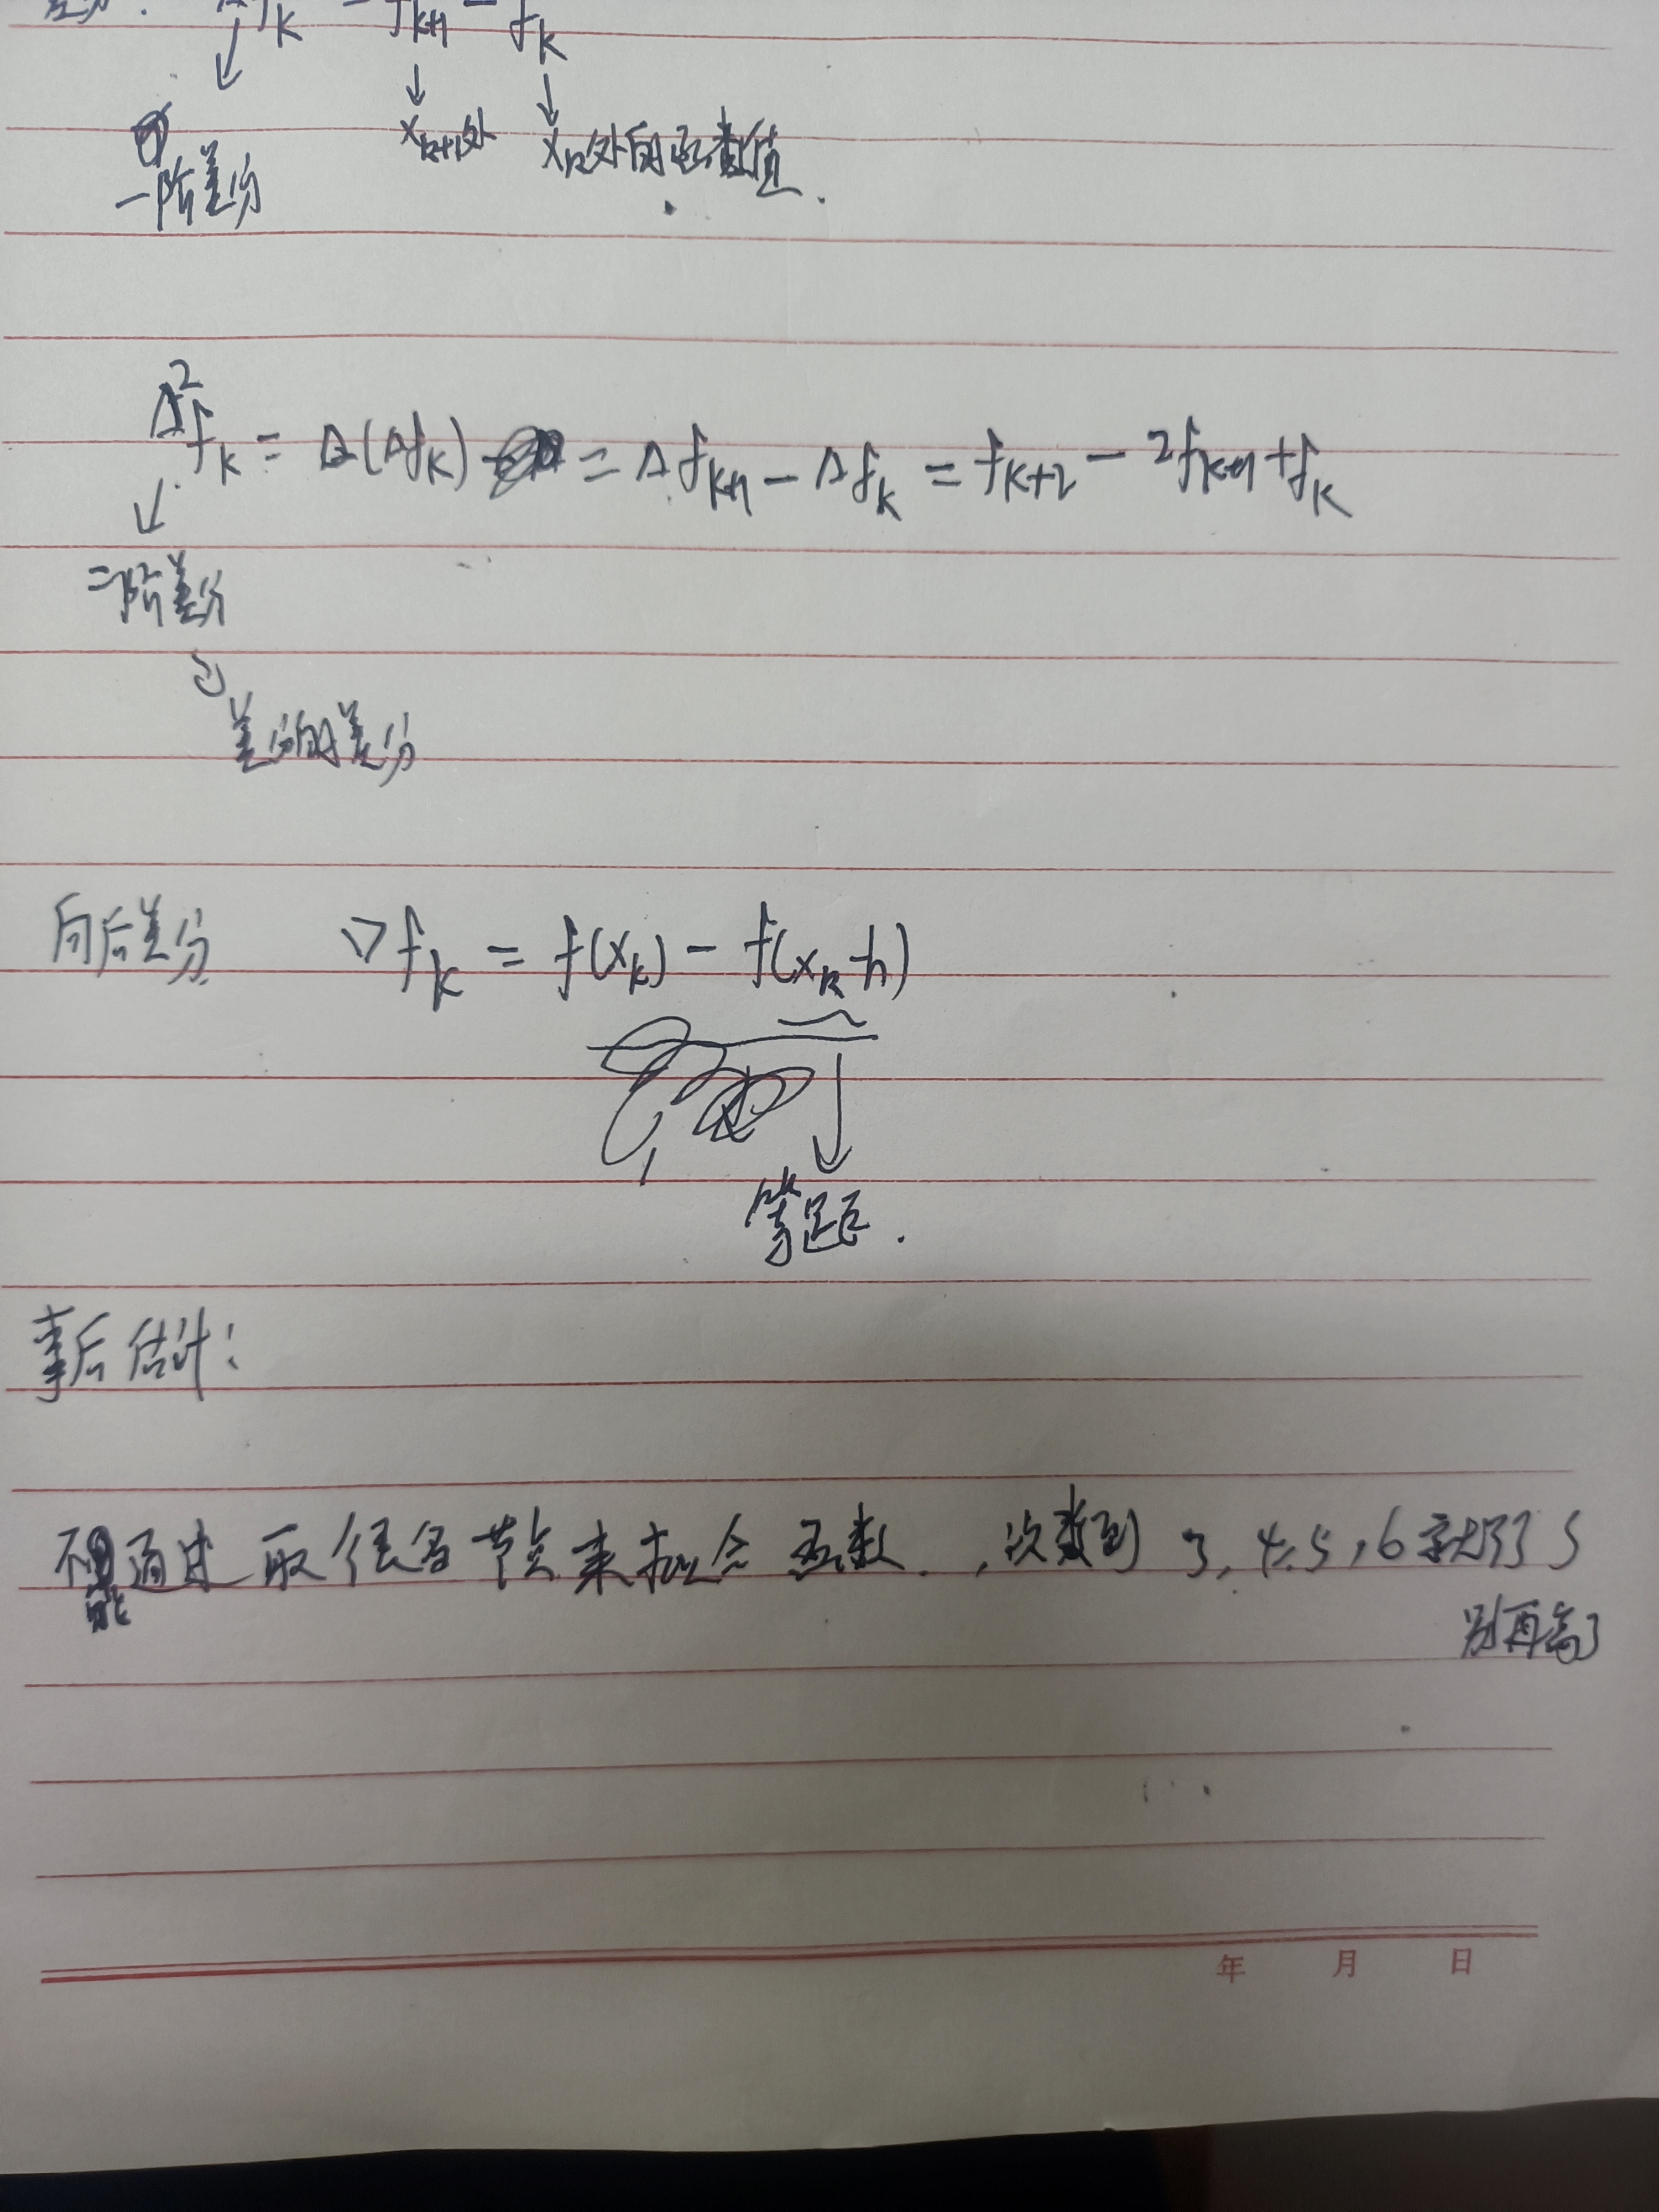 差分: Δf_k = f_{k+1} - f_k
↓ ↓ ↓
一阶差分 x_{k+1}处 x_k处的函数值.
Δ²f_k = Δ(Δf_k) = Δf_{k+1} - Δf_k = f_{k+2} - 2f_{k+1} + f_k
二阶差分
差分的差分
向后差分 ∇f_k = f(x_k) - f(x_k-h)
等距.
事后估计:
不能通过取很多节点来拟合函数.,次数到 3,4,5,6就行了
别再高了
年 月 日